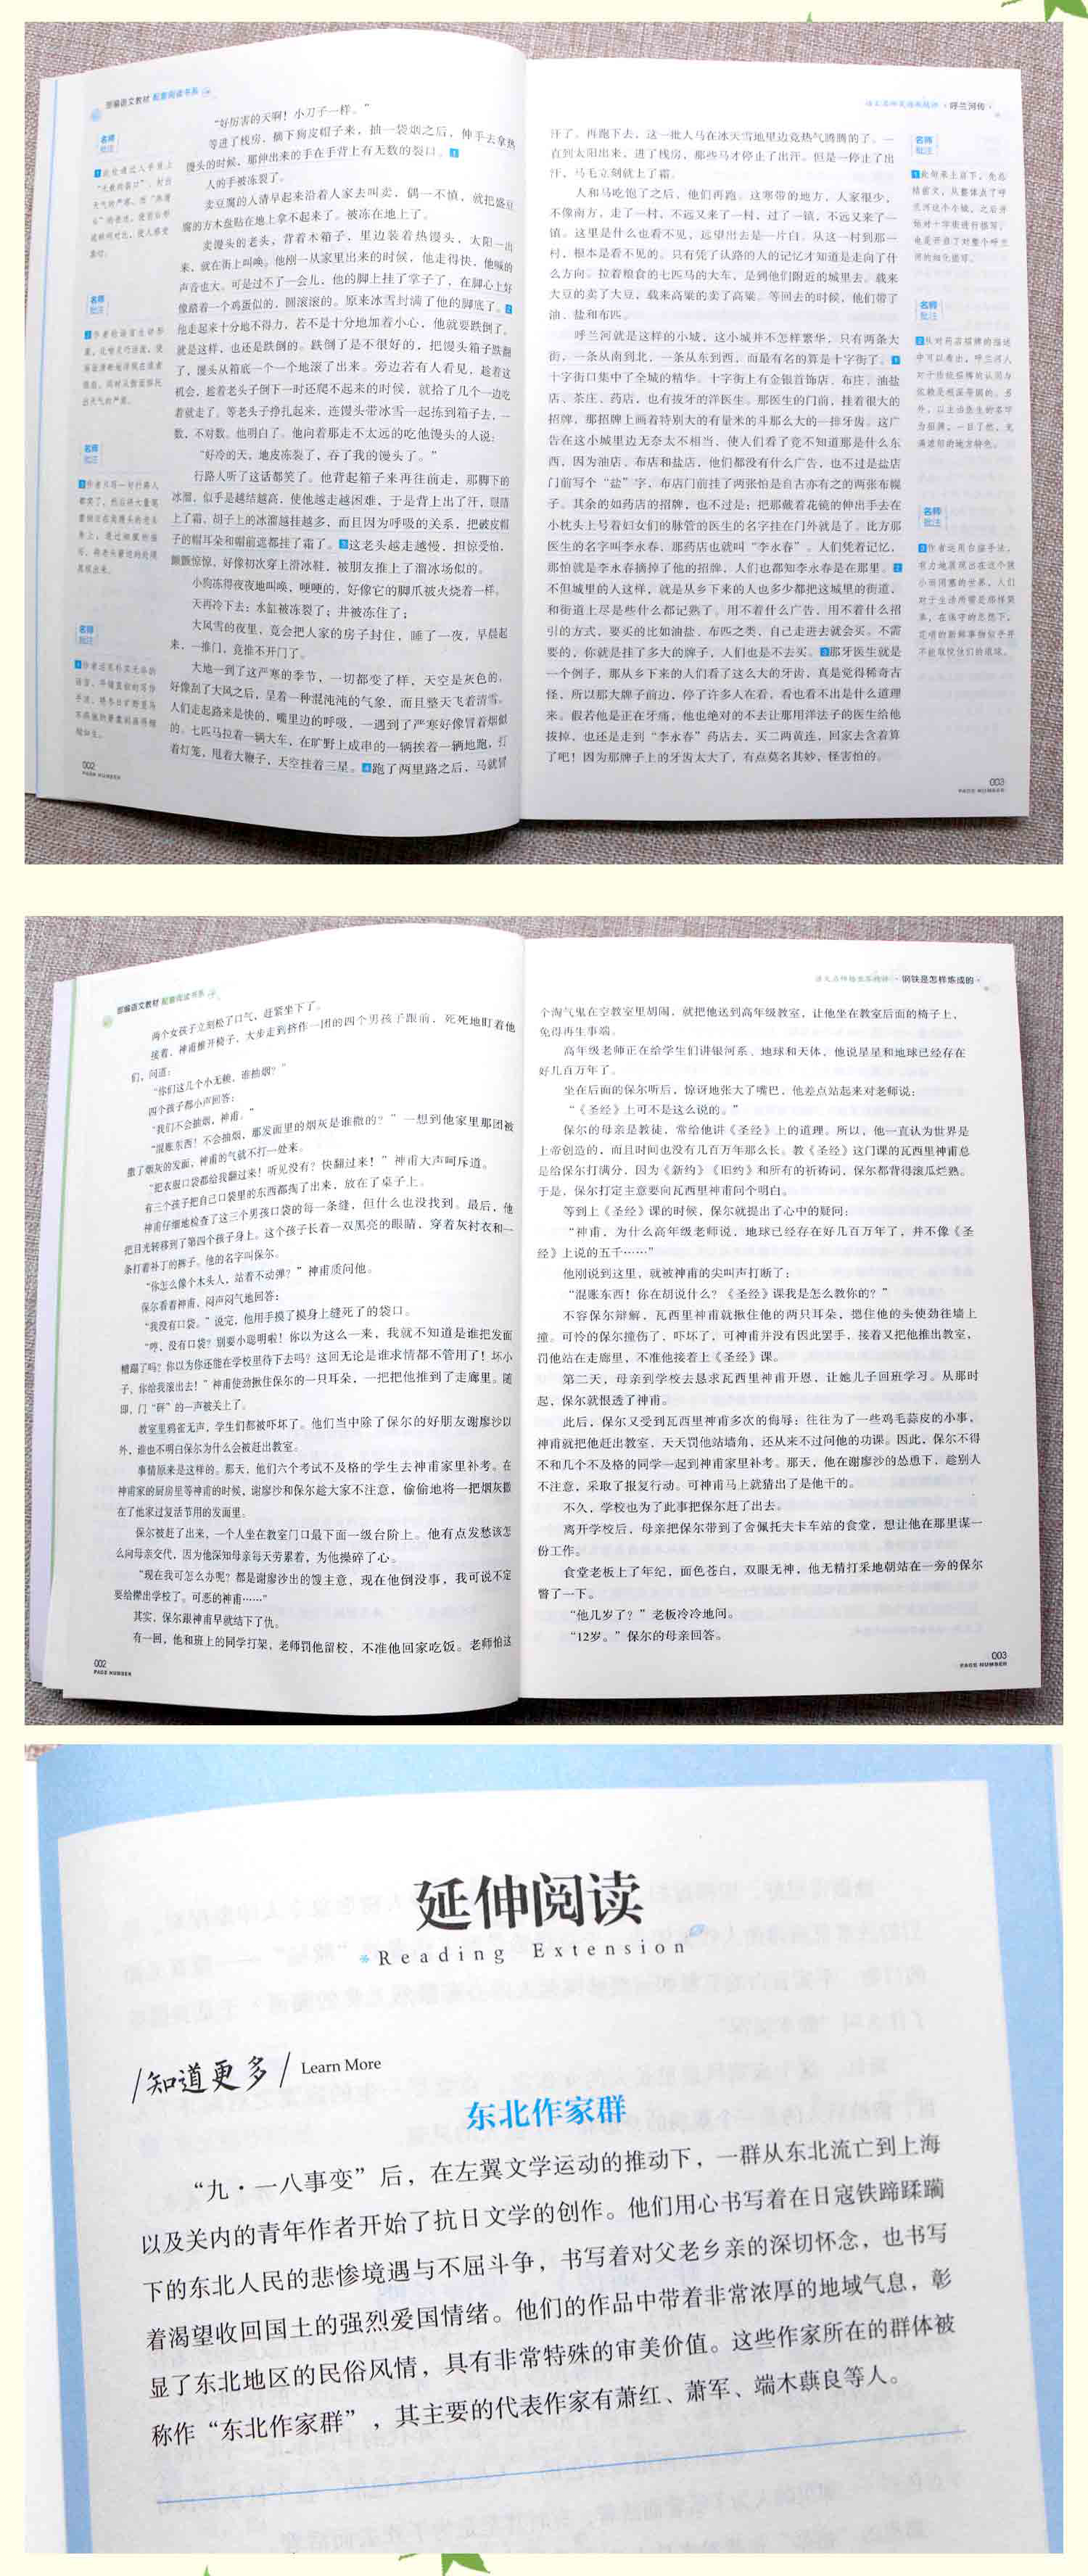 部编语文教材 配套阅读书系
“好厉害的天啊！小刀子一样。”
等进了栈房，摘下狗皮帽子来，抽一袋烟之后，伸手去拿热
馒头的时候，那伸出来的手在手背上有无数的裂口。1
人的手被冻裂了。
卖豆腐的人清早起来沿着人家去叫卖，偶一不慎，就把盛豆
腐的方木盘贴在地上拿不起来了。被冻在地上了。
卖馒头的老头，背着木箱子，里边装着热馒头，太阳一出
来，就在街上叫唤。他刚一从家里出来的时候，他走得快，他喊的
声音也大。可是过不了一会儿，他的脚上挂了掌子了，在脚心上好
像踏着一个鸡蛋似的，圆滚滚的。原来冰雪封满了他的脚底了。2
他走起来十分地不得力，若不是十分地加着小心，他就要跌倒了。
就是这样，也还是跌倒的。跌倒了是不很好的，把馒头箱子跌翻
了，馒头从箱底一个一个地滚了出来。旁边若有人看见，趁着这
机会，趁着老头子倒下一时还爬不起来的时候，就拾了几个一边吃
着就走了。等老头子挣扎起来，连馒头带冰雪一起拣到箱子去，一
数，不对数。他明白了。他向着那走不太远的吃他馒头的人说：
“好冷的天，地皮冻裂了，吞了我的馒头了。”
行路人听了这话都笑了。他背起箱子来再往前走，那脚下的
冰溜，似乎是越结越高，使他越走越困难，于是背上出了汗，眼睛
上了霜，胡子上的冰溜越挂越多，而且因为呼吸的关系，把破皮帽
子的帽耳朵和帽前遮都挂了霜了。3这老头越走越慢，担惊受怕，
颤颤惊惊，好像初次穿上滑冰鞋，被朋友推上了溜冰场似的。
小狗冻得夜夜地叫唤，哽哽的，好像它的脚爪被火烧着一样。
天再冷下去：水缸被冻裂了；井被冻住了；
大风雪的夜里，竟会把人家的房子封住，睡了一夜，早晨起
来，一推门，竟推不开门了。
大地一到了这严寒的季节，一切都变了样，天空是灰色的，
好像刮了大风之后，呈着一种混沌沌的气象，而且整天飞着清雪。
人们走起路来是快的，嘴里边的呼吸，一遇到了严寒好像冒着烟似
的。七匹马拉着一辆大车，在旷野上成串的一辆挨着一辆地跑，打
着灯笼，甩着大鞭子，天空挂着三星。4跑了两里路之后，马就冒
002
PAGE NUMBER
名师
批注
名师
批注
名师
批注
名师
批注
·呼兰河传·
汗了。再跑下去，这一批人马在冰天雪地里边竟热气腾腾的了。一
直到太阳出来，进了栈房，那些马才停止了出汗。但是一停止了出
汗，马毛立刻就上了霜。
人和马吃饱了之后，他们再跑。这寒带的地方，人家很少，
不像南方，走了一村，不远又来了一村，过了一镇，不远又来了一
镇。这里是什么也看不见，远望出去是一片白。从这一村到那一
村，根本是看不见的。只有凭了认路的人的记忆才知道是走向了什
么方向。拉着粮食的七匹马的大车，是到他们附近的城里去。载来
大豆的卖了大豆，载来高粱的卖了高粱。等回去的时候，他们带了
油、盐和布匹。
呼兰河就是这样的小城，这小城并不怎样繁华，只有两条大
街，一条从南到北，一条从东到西，而最有名的算是十字街了。1
十字街口集中了全城的精华。十字街上有金银首饰店、布庄、油盐
店、茶庄、药店，也有拔牙的洋医生。那医生的门前，挂着很大的
招牌，那招牌上画着特别大的有量米的斗那么大的一排牙齿。这广
告在这小城里边无奈太不相当，使人们看了竟不知道那是什么东
西，因为油店、布店和盐店，他们都没有什么广告，也不过是盐店
门前写个“盐”字，布店门前挂了两张怕是自古亦有之的两张布幌
子。其余的如药店的招牌，也不过是：把那戴着花镜的伸出手去在
小枕头上号着妇女们的脉管的医生的名字挂在门外就是了。比方那
医生的名字叫李永春，那药店也就叫“李永春”。人们凭着记忆，
那怕就是李永春摘掉了他的招牌，人们也都知李永春是在那里。2
不但城里的人这样，就是从乡下来的人也多少都把这城里的街道，
和街道上尽是些什么都记熟了。用不着什么广告，用不着什么招
引的方式，要买的比如油盐、布匹之类，自己走进去就会买。不需
要的，你就是挂了多大的牌子，人们也是不去买。3那牙医生就是
一个例子，那从乡下来的人们看了这么大的牙齿，真是觉得稀奇古
怪，所以那大牌子前边，停了许多人在看，看也看不出是什么道理
来。假若他是正在牙痛，他也绝对的不去让那用洋法子的医生给他
拔掉，也还是走到“李永春”药店去，买二两黄连，回家去含着算
了吧！因为那牌子上的牙齿太大了，有点莫名其妙，怪害怕的。
003
PAGE NUMBER
名师
批注
名师
批注
名师
批注
部编语文教材 配套阅读书系
两个女孩子立刻松了口气，赶紧坐下了。
接着，神甫推开椅子，大步走到挤作一团的四个男孩子跟前，死死地盯着他
们，问道：
“你们这几个小无赖，谁抽烟？”
四个孩子都小声回答：
“我们不会抽烟，神甫。”
“混账东西！不会抽烟，那发面里的烟灰是谁撒的？”一想到他家里那团被
撒了烟灰的发面，神甫的气就不打一处来。
“把衣服口袋都给我翻过来！听见没有？快翻过来！”神甫大声呵斥道。
有三个孩子把自己口袋里的东西都掏了出来，放在了桌子上。
神甫仔细地检查了这三个男孩口袋的每一条缝，但什么也没找到。最后，他
把目光转移到了第四个孩子身上。这个孩子长着一双黑亮的眼睛，穿着灰衬衣和一
条打着补丁的裤子。他的名字叫保尔。
“你怎么像个木头人，站着不动弹？”神甫质问他。
保尔看着神甫，闷声闷气地回答：
“我没有口袋。”说完，他用手摸了摸身上缝死了的袋口。
“哼，没有口袋？别耍小聪明啦！你以为这么一来，我就不知道是谁把发面
糟蹋了吗？你以为你还能在学校里待下去吗？这回无论是谁求情都不管用了！坏小
子，你给我滚出去！”神甫使劲揪住保尔的一只耳朵，一把把他推到了走廊里。随
即，门“砰”的一声被关上了。
教室里鸦雀无声，学生们都被吓坏了。他们当中除了保尔的好朋友谢廖沙以
外，谁也不明白保尔为什么会被赶出教室。
事情原来是这样的。那天，他们六个考试不及格的学生去神甫家里补考。在
神甫家的厨房里等神甫的时候，谢廖沙和保尔趁大家不注意，偷偷地将一把烟灰撒
在了他家过复活节用的发面里。
保尔被赶了出来，一个人坐在教室门口最下面一级台阶上。他有点发愁该怎
么向母亲交代，因为他深知母亲每天劳累着，为他操碎了心。
“现在我可怎么办呢？都是谢廖沙出的馊主意，现在他倒没事，我可说不定
要给撵出学校了。可恶的神甫……”
其实，保尔跟神甫早就结下了仇。
有一回，他和班上的同学打架，老师罚他留校，不准他回家吃饭。老师怕这
002
PAGE NUMBER
·钢铁是怎样炼成的·
个淘气鬼在空教室里胡闹，就把他送到高年级教室，让他坐在教室后面的椅子上，
免得再生事端。
高年级老师正在给学生们讲银河系、地球和天体，他说星星和地球已经存在
好几百万年了。
坐在后面的保尔听后，惊讶地张大了嘴巴，他差点站起来对老师说：
“《圣经》上可不是这么说的。”
保尔的母亲是教徒，常给他讲《圣经》上的道理。所以，他一直认为世界是
上帝创造的，而且时间也没有几百万年那么长。教《圣经》这门课的瓦西里神甫总
是给保尔打满分，因为《新约》《旧约》和所有的祈祷词，保尔都背得滚瓜烂熟。
于是，保尔打定主意要向瓦西里神甫问个明白。
等到上《圣经》课的时候，保尔就提出了心中的疑问：
“神甫，为什么高年级老师说，地球已经存在好几百万年了，并不像《圣
经》上说的五千……”
他刚说到这里，就被神甫的尖叫声打断了：
“混账东西！你在胡说什么？《圣经》课我是怎么教你的？”
不容保尔辩解，瓦西里神甫就揪住他的两只耳朵，摁住他的头使劲往墙上
撞。可怜的保尔撞伤了，吓坏了，可神甫并没有因此罢手，接着又把他推出教室，
罚他站在走廊里，不准他接着上《圣经》课。
第二天，母亲到学校去恳求瓦西里神甫开恩，让她儿子回班学习。从那时
起，保尔就恨透了神甫。
此后，保尔又受到瓦西里神甫多次的侮辱：往往为了一些鸡毛蒜皮的小事，
神甫就把他赶出教室，天天罚他站墙角，还从来不过问他的功课。因此，保尔不得
不和几个不及格的同学一起到神甫家里补考。那天，他在谢廖沙的怂恿下，趁别人
不注意，采取了报复行动。可神甫马上就猜出了是他干的。
不久，学校也为了此事把保尔赶了出去。
离开学校后，母亲把保尔带到了舍佩托夫卡车站的食堂，想让他在那里谋一
份工作。
食堂老板上了年纪，面色苍白，双眼无神，他无精打采地朝站在一旁的保尔
瞥了一下。
“他几岁了？”老板冷冷地问。
“12岁。”保尔的母亲回答。
003
PAGE NUMBER
延伸阅读
Reading Extension
/知道更多/ Learn More
东北作家群
“九·一八事变”后，在左翼文学运动的推动下，一群从东北流亡到上海
以及关内的青年作者开始了抗日文学的创作。他们用心书写着在日寇铁蹄蹂躏
下的东北人民的悲惨境遇与不屈斗争，书写着对父老乡亲的深切怀念，也书写
着渴望收回国土的强烈爱国情绪。他们的作品中带着非常浓厚的地域气息，彰
显了东北地区的民俗风情，具有非常特殊的审美价值。这些作家所在的群体被
称作“东北作家群”，其主要的代表作家有萧红、萧军、端木蕻良等人。